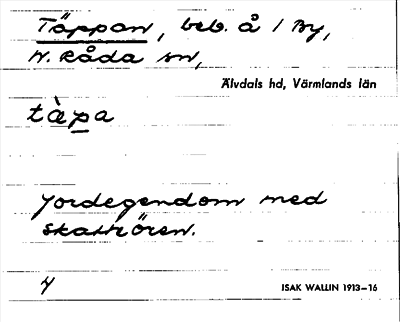 Täppan, beb. å 1 By,
N. Råda sn,
Älvdals hd, Värmlands län
tὰpa
Jordegendom med
skattören.
4
ISAK WALLIN 1913–16